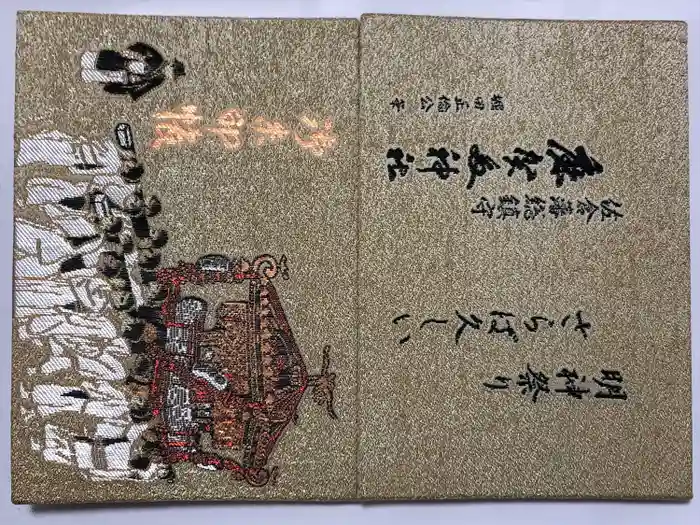 佐倉藩総鎮守
麻賀多神社
堀田正倫公書
明神祭り
さらば久しい
御朱印帳